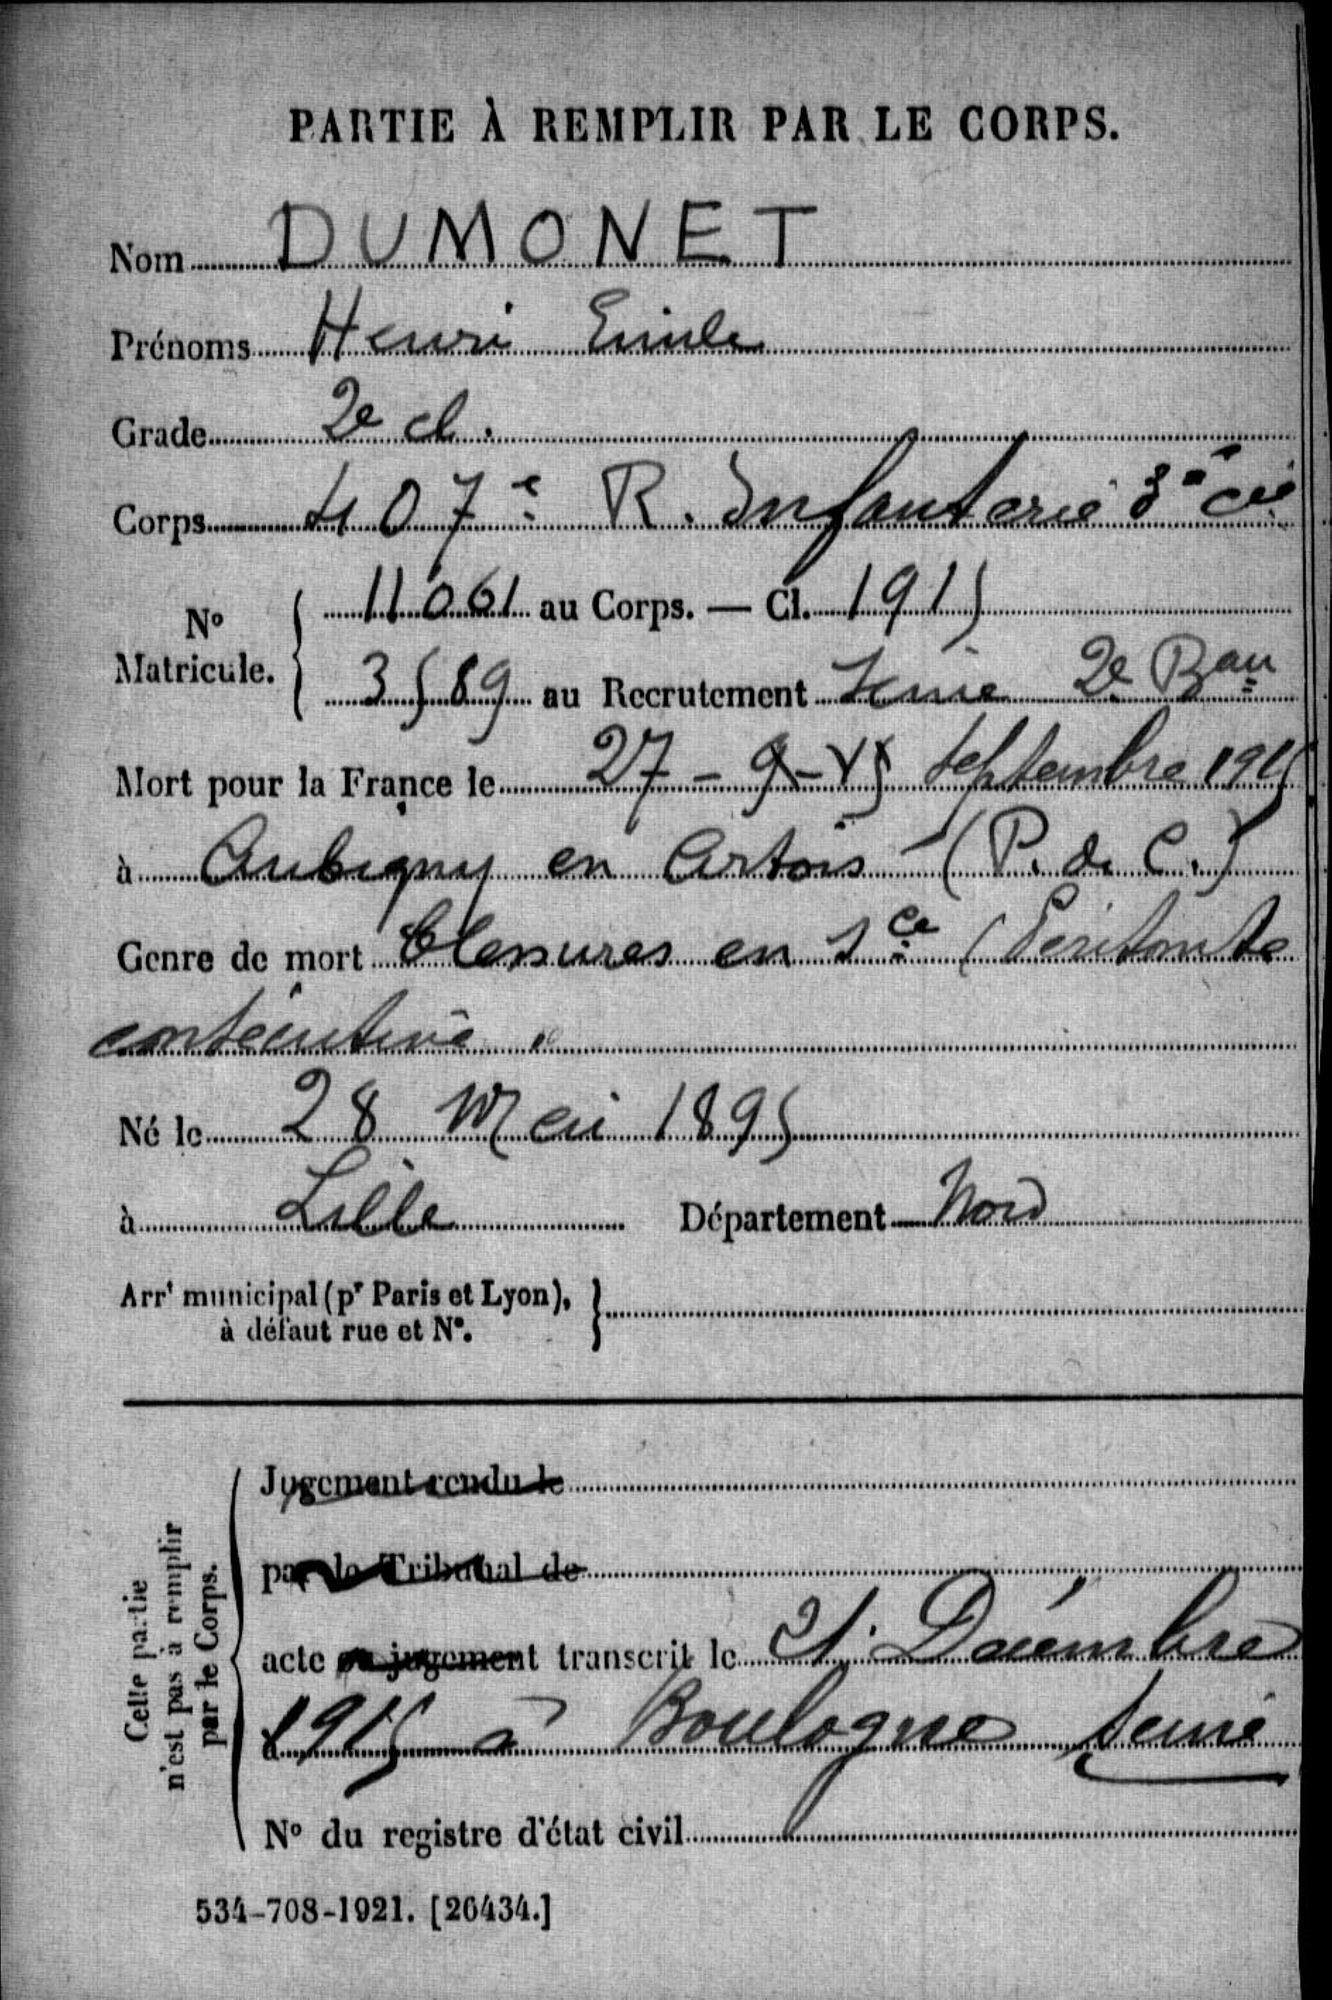 PARTIE À REMPLIR PAR LE CORPS.
Nom DUMONET
Prénoms Henri Emile
Grade 2e cl.
Corps 407e R. Infanterie 3e cie
No Matricule. 11061 au Corps. — Cl. 1915
3589 au Recrutement Seine 2e Bau
Mort pour la France le 27-9-15 septembre 1915
à Aubigny en Artois (P. de C.)
Genre de mort blessures en sce (Péritonite
consécutive "
Né le 28 Mai 1895
à Lille Département Nord
Arrt municipal (pr Paris et Lyon),
à défaut rue et No.
Cette partie
n'est pas à remplir
par le Corps.
Jugement rendu le
par le Tribunal de
acte ou jugement transcrit le 21 Décembre
à 1915 à Boulogne Seine
No du registre d'état civil
534-708-1921. [26434.]